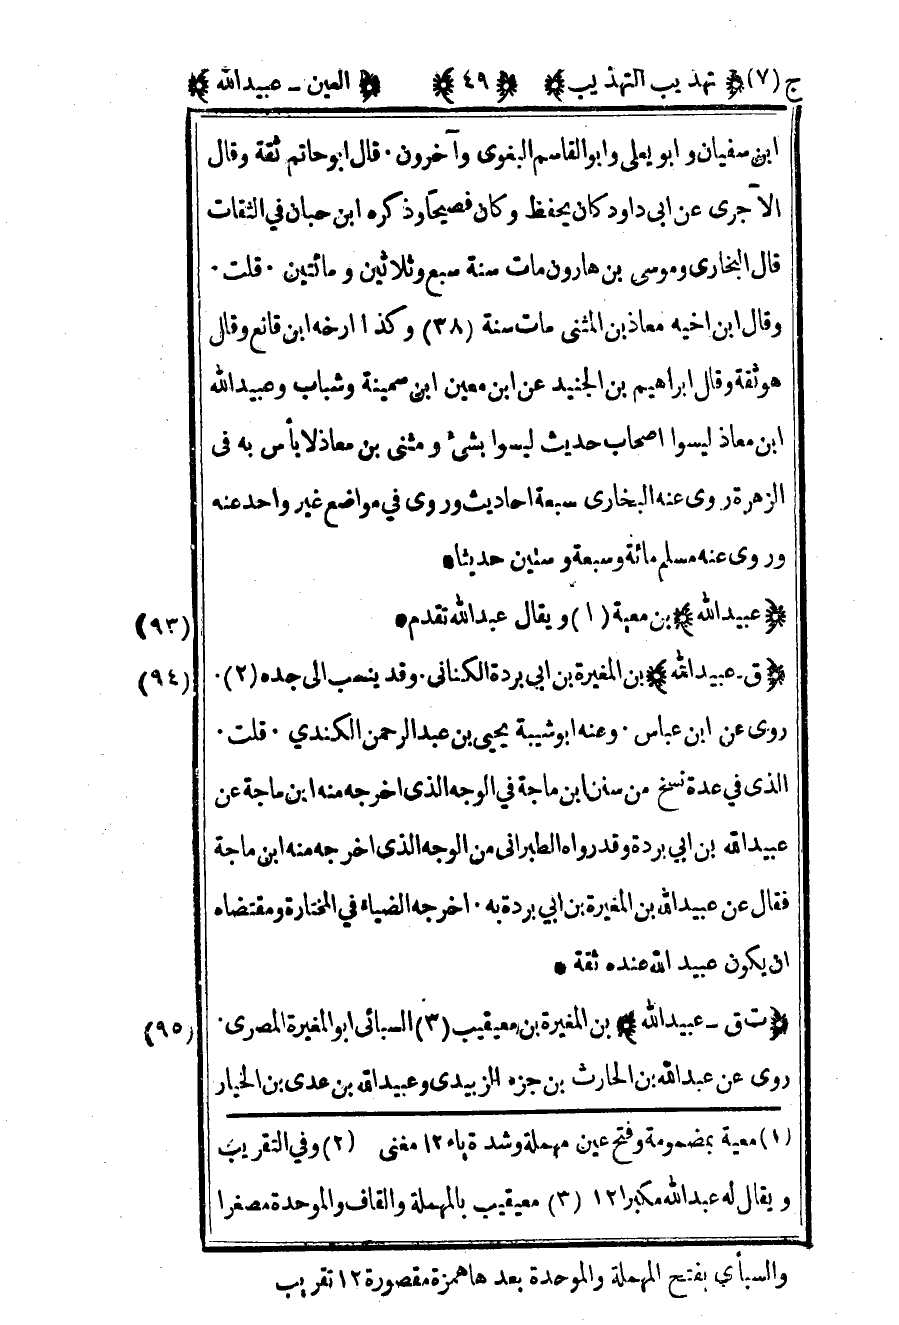 ج (٧) ﴿ تهذيب التهذيب ﴾ ﴿ ٤٩ ﴾ ﴿ العين ـ عبيدالله ﴾
ابن سفيان و ابو يعلى وابو القاسم البغوى وآخرون ٠ قال ابو حاتم ثقة وقال
الآجرى عن ابى داود كان يحفظ وكان فصيحاً وذكره ابن حبان في الثقات
قال البخارى وموسى بن هارون مات سنة سبع وثلاثين و مائتين ٠ قلت ٠
وقال ابن اخيه معاذ بن المثنى مات سنة (٣٨) وكذا ارخه ابن قانع وقال
هو ثقة وقال ابراهيم بن الجنيد عن ابن معين ابن سمينة وشباب وعبيدالله
ابن معاذ ليسوا اصحاب حديث ليسوا بشئ و مثنى بن معاذ لا بأس به فى
الزهرة روى عنه البخارى سبعة احاديث وروى في مواضع غير واحد عنه
وروى عنه مسلم مائة وسبعة وستين حديثا ●
(٩٣) ﴿ عبيدالله ﴾ بن معية (١) ويقال عبدالله تقدم ●
(٩٤) ﴿ ق ـ عبيدالله ﴾ بن المغيرة بن ابي بردة الكنانى ٠ وقد ينسب الى جده (٢) ٠
روى عن ابن عباس ٠ وعنه ابو شيبة يحيى بن عبد الرحمن الكندي ٠ قلت ٠
الذى في عدة نسخ من سنن ابن ماجة في الوجه الذى اخرجه منه ابن ماجة عن
عبيدالله بن ابي بردة وقد رواه الطبرانى من الوجه الذى اخرجه منه ابن ماجة
فقال عن عبيدالله بن المغيرة بن ابي بردة به ٠ اخرجه الضياء في المختارة ومقتضاه
ان يكون عبيد الله عنده ثقة ●
(٩٥) ﴿ ت ق ـ عبيدالله ﴾ بن المغيرة بن معيقيب (٣) السبائى ابو المغيرة المصرى ٠
روى عن عبدالله بن الحارث بن جزء الزبيدى وعبيدالله بن عدى بن الخيار
(١) معية بمضمومة وفتح عين مهملة وشدة ياء ١٢ مغنى (٢) وفي التقريب
و يقال له عبدالله مكبرا ١٢ (٣) معيقيب بالمهملة والقاف والموحدة مصغرا
والسبأي بفتح المهملة والموحدة بعدها همزة مقصورة ١٢ تقريب